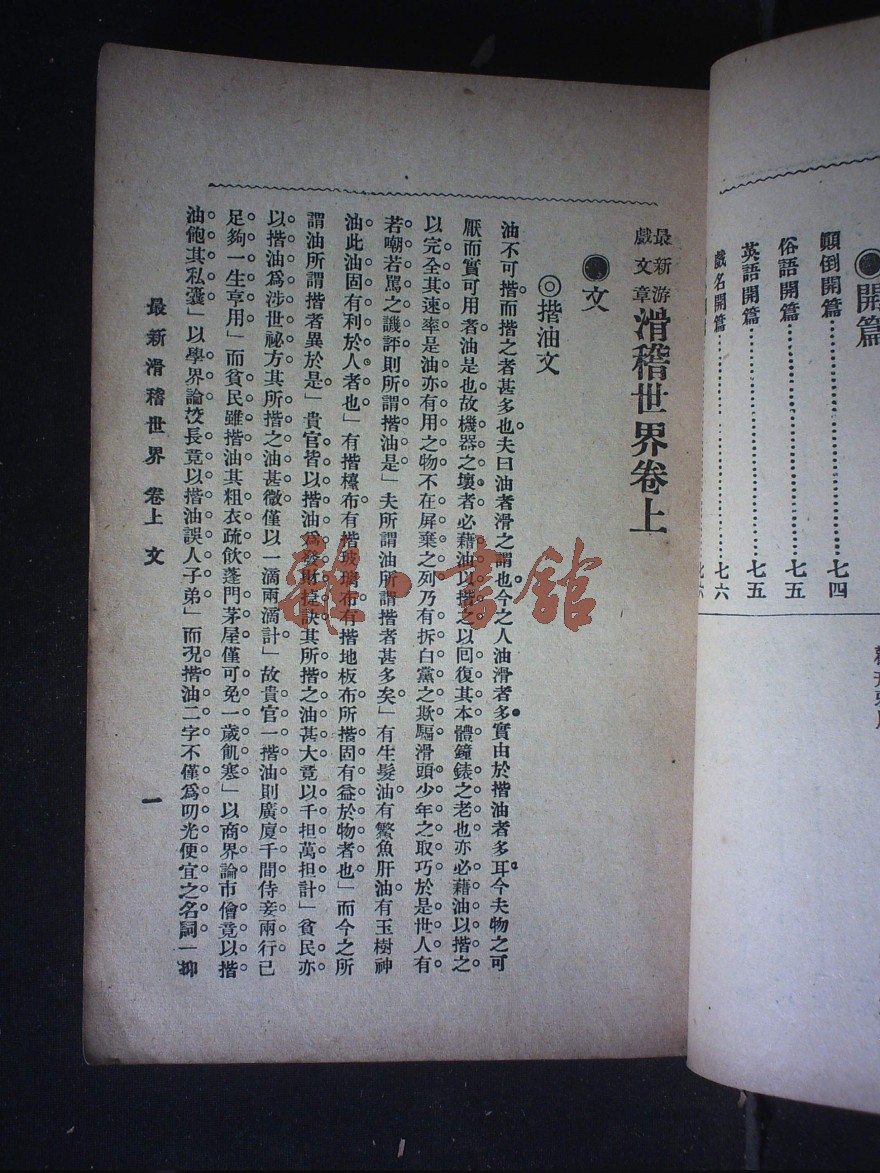 開篇
顛倒開篇…………………七四
俗語開篇…………………七五
英語開篇…………………七五
戲名開篇…………………七六
最新游戲文章滑稽世界卷上
文
◎揩油文
油不可揩而揩之者甚多也夫曰油者滑之謂也今之人油滑者多實由於揩油者多耳今夫物之可
厭而實可用者油是也故機器之壞者必藉油以揩之以回復其本體鐘錶之老也亦必藉油以揩之
以完全其速率是油亦有用之物不在屏棄之列乃有拆白黨之欺騙滑頭少年之取巧於是世人有
若嘲若罵之譏評則所謂揩油是」夫所謂油所謂揩者甚多矣」有生髮油有繁魚肝油有玉樹神
油此油固有利於人者也」有揩檯布有揩玻璃布有揩地板布所揩固有益於物者也」而今之所
謂油所謂揩者異於是」貴官皆以揩油爲發財捷訣其所揩之油甚大竟以千担萬担計」貧民亦
以揩油爲涉世祕方其所揩之油甚微僅以一滴兩滴計」故貴官一揩油則廣廈千間侍妾兩行已
足夠一生享用」而貧民雖揩油其粗衣疏飲蓬門茅屋僅可免一歲飢寒」以商界論市儈竟以揩
油飽其私囊」以學界論校長竟以揩油誤人子弟」而況揩油二字不僅爲叨光便宜之名詞一抑
最新滑稽世界 卷上 文
一
雜·書館